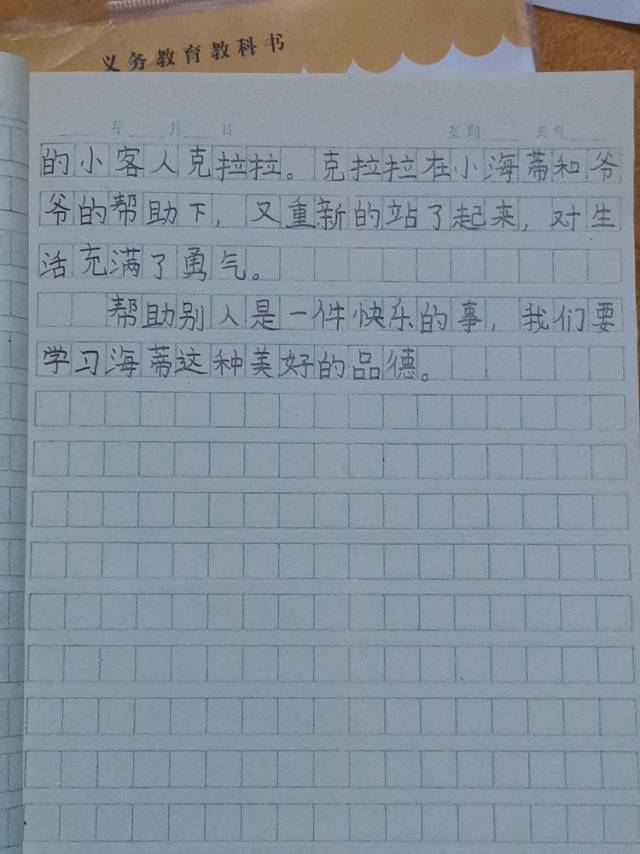 义务教育教科书
年 月 日 星期 天气
的小客人克拉拉。克拉拉在小海蒂和爷
爷的帮助下，又重新的站了起来，对生
活充满了勇气。
帮助别人是一件快乐的事，我们要
学习海蒂这种美好的品德。